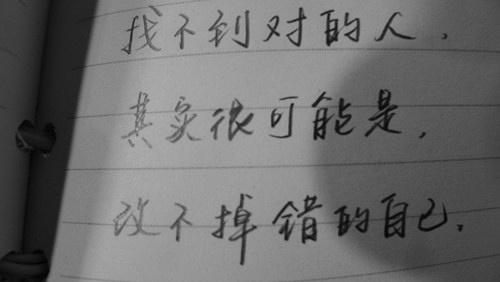 找不到对的人，
其实很可能是，
改不掉错的自己.